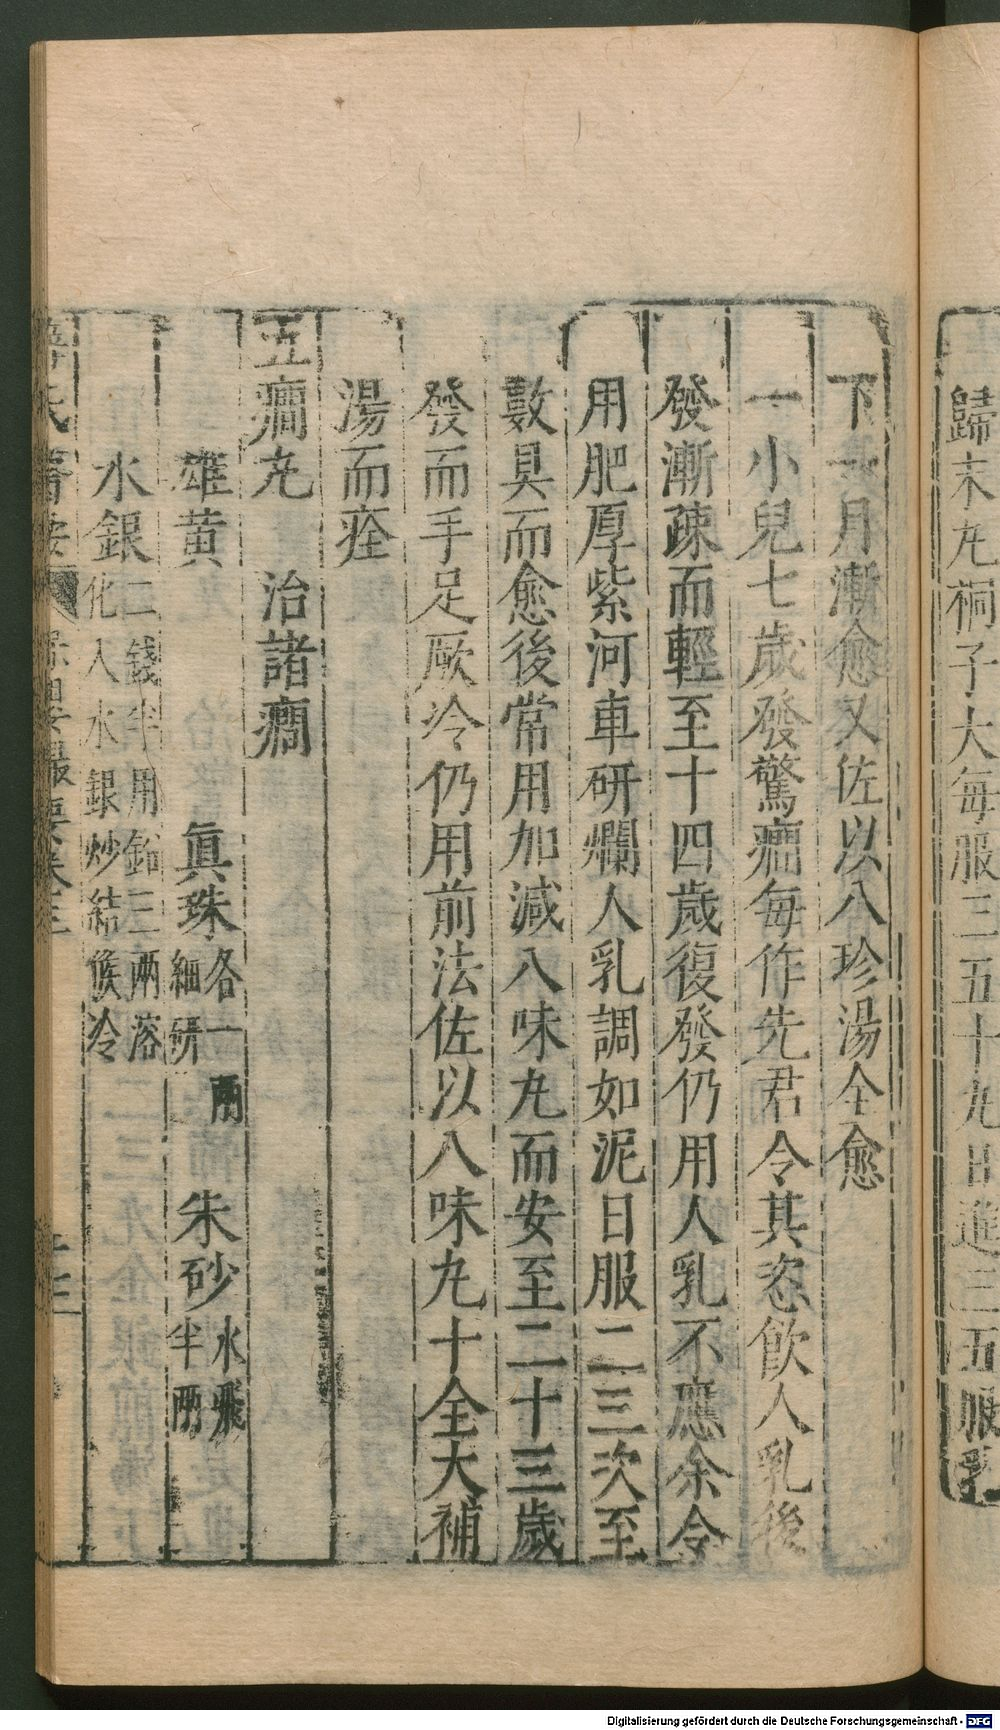 歸末丸桐子大每服三五十丸日進三五服乳
下一月漸愈又佐以八珍湯全愈
一小兒七歲發驚癇每作先君令其恣飲人乳後
發漸疎而輕至十四歲復發仍用人乳不應余令
用肥厚紫河車研爛人乳調如泥日服二三次至
數具而愈後常用加减八味丸而安至二十三歲
發而手足厥冷仍用前法佐以八味丸十全大補
湯而痊
五癇丸 治諸癇
雄黃 眞珠各一兩細研 朱砂水飛半兩
水銀二錢半用鉛三兩溶化入水銀炒結候冷
Digitalisierung gefördert durch die Deutsche Forschungsgemeinschaft - DFG